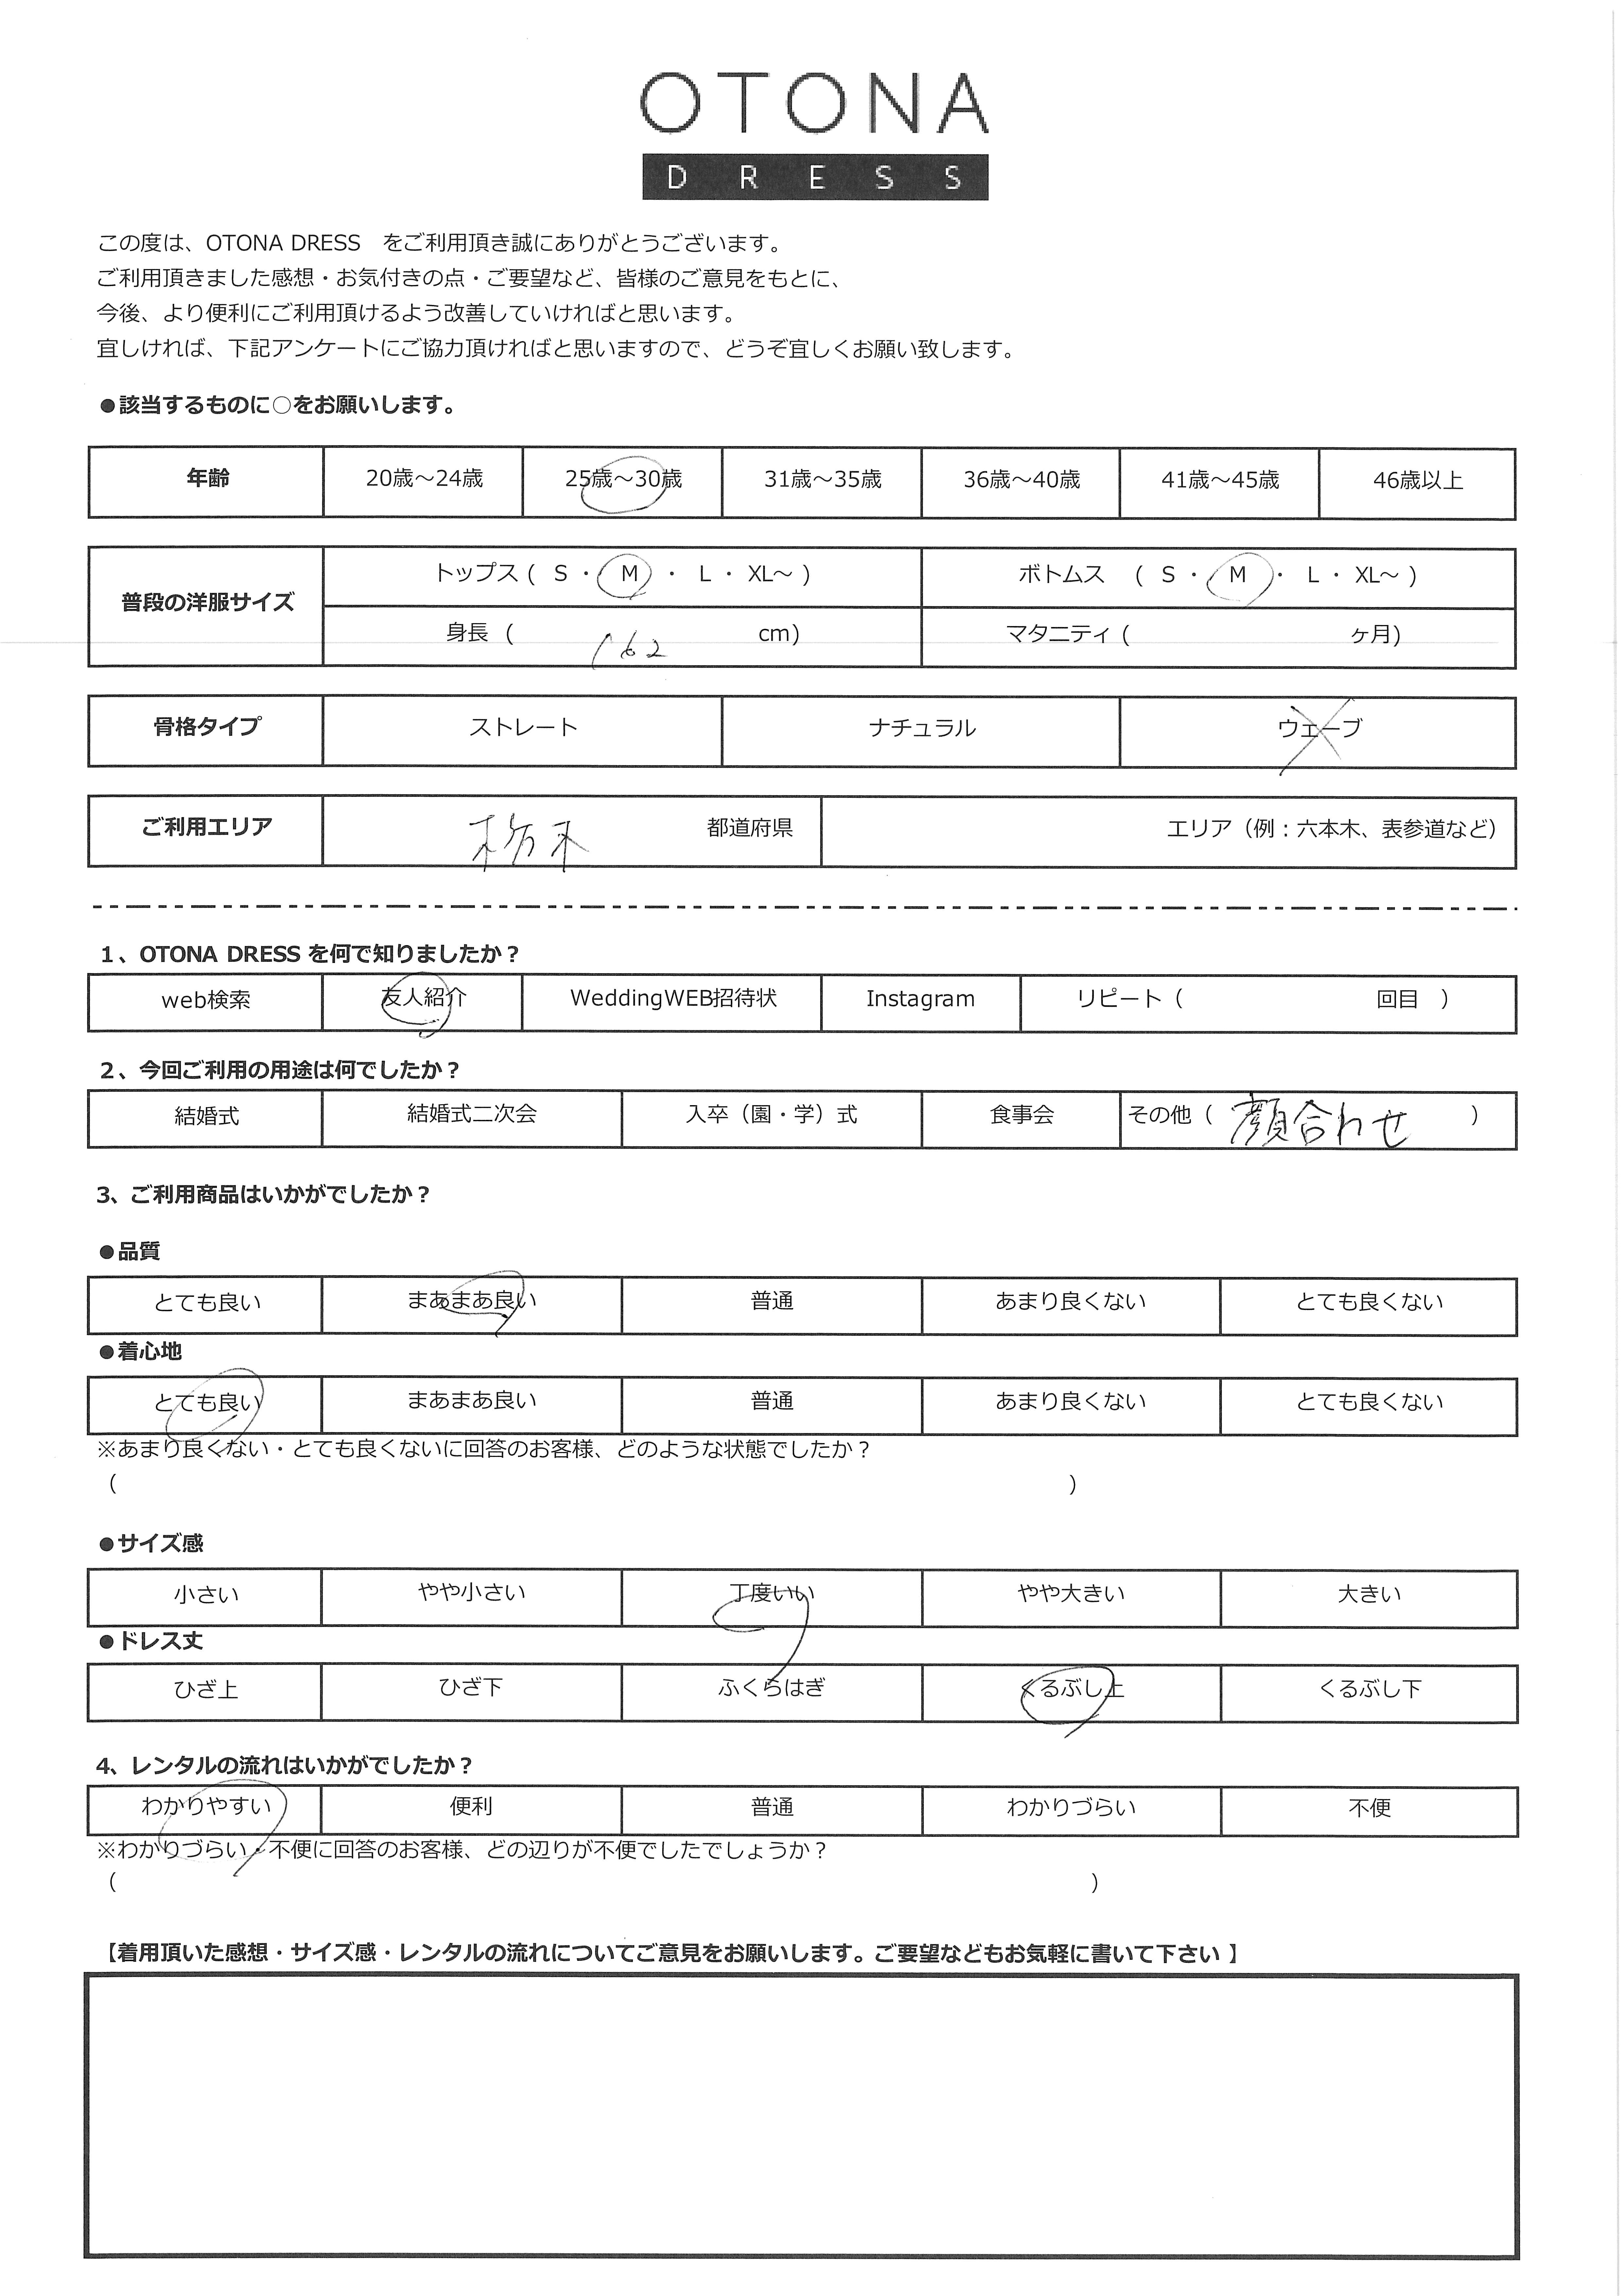 OTONA
DRESS
この度は、OTONA DRESS　をご利用頂き誠にありがとうございます。
ご利用頂きました感想・お気付きの点・ご要望など、皆様のご意見をもとに、
今後、より便利にご利用頂けるよう改善していければと思います。
宜しければ、下記アンケートにご協力頂ければと思いますので、どうぞ宜しくお願い致します。
●該当するものに○をお願いします。
年齢 20歳～24歳 25歳～30歳 31歳～35歳 36歳～40歳 41歳～45歳 46歳以上
普段の洋服サイズ
トップス ( S ・ M ・ L ・ XL～ ) ボトムス ( S ・ M ・ L ・ XL～ )
身長 ( 162 cm) マタニティ ( ヶ月)
骨格タイプ ストレート ナチュラル ウェーブ
ご利用エリア 栃木 都道府県 エリア（例：六本木、表参道など）
1、OTONA DRESS を何で知りましたか？
web検索 友人紹介 WeddingWEB招待状 Instagram リピート（ 回目 ）
2、今回ご利用の用途は何でしたか？
結婚式 結婚式二次会 入卒（園・学）式 食事会 その他（ 顔合わせ ）
3、ご利用商品はいかがでしたか？
●品質
とても良い まあまあ良い 普通 あまり良くない とても良くない
●着心地
とても良い まあまあ良い 普通 あまり良くない とても良くない
※あまり良くない・とても良くないに回答のお客様、どのような状態でしたか？
（ ）
●サイズ感
小さい やや小さい 丁度いい やや大きい 大きい
●ドレス丈
ひざ上 ひざ下 ふくらはぎ くるぶし上 くるぶし下
4、レンタルの流れはいかがでしたか？
わかりやすい 便利 普通 わかりづらい 不便
※わかりづらい・不便に回答のお客様、どの辺りが不便でしたでしょうか？
（ ）
【着用頂いた感想・サイズ感・レンタルの流れについてご意見をお願いします。ご要望などもお気軽に書いて下さい 】